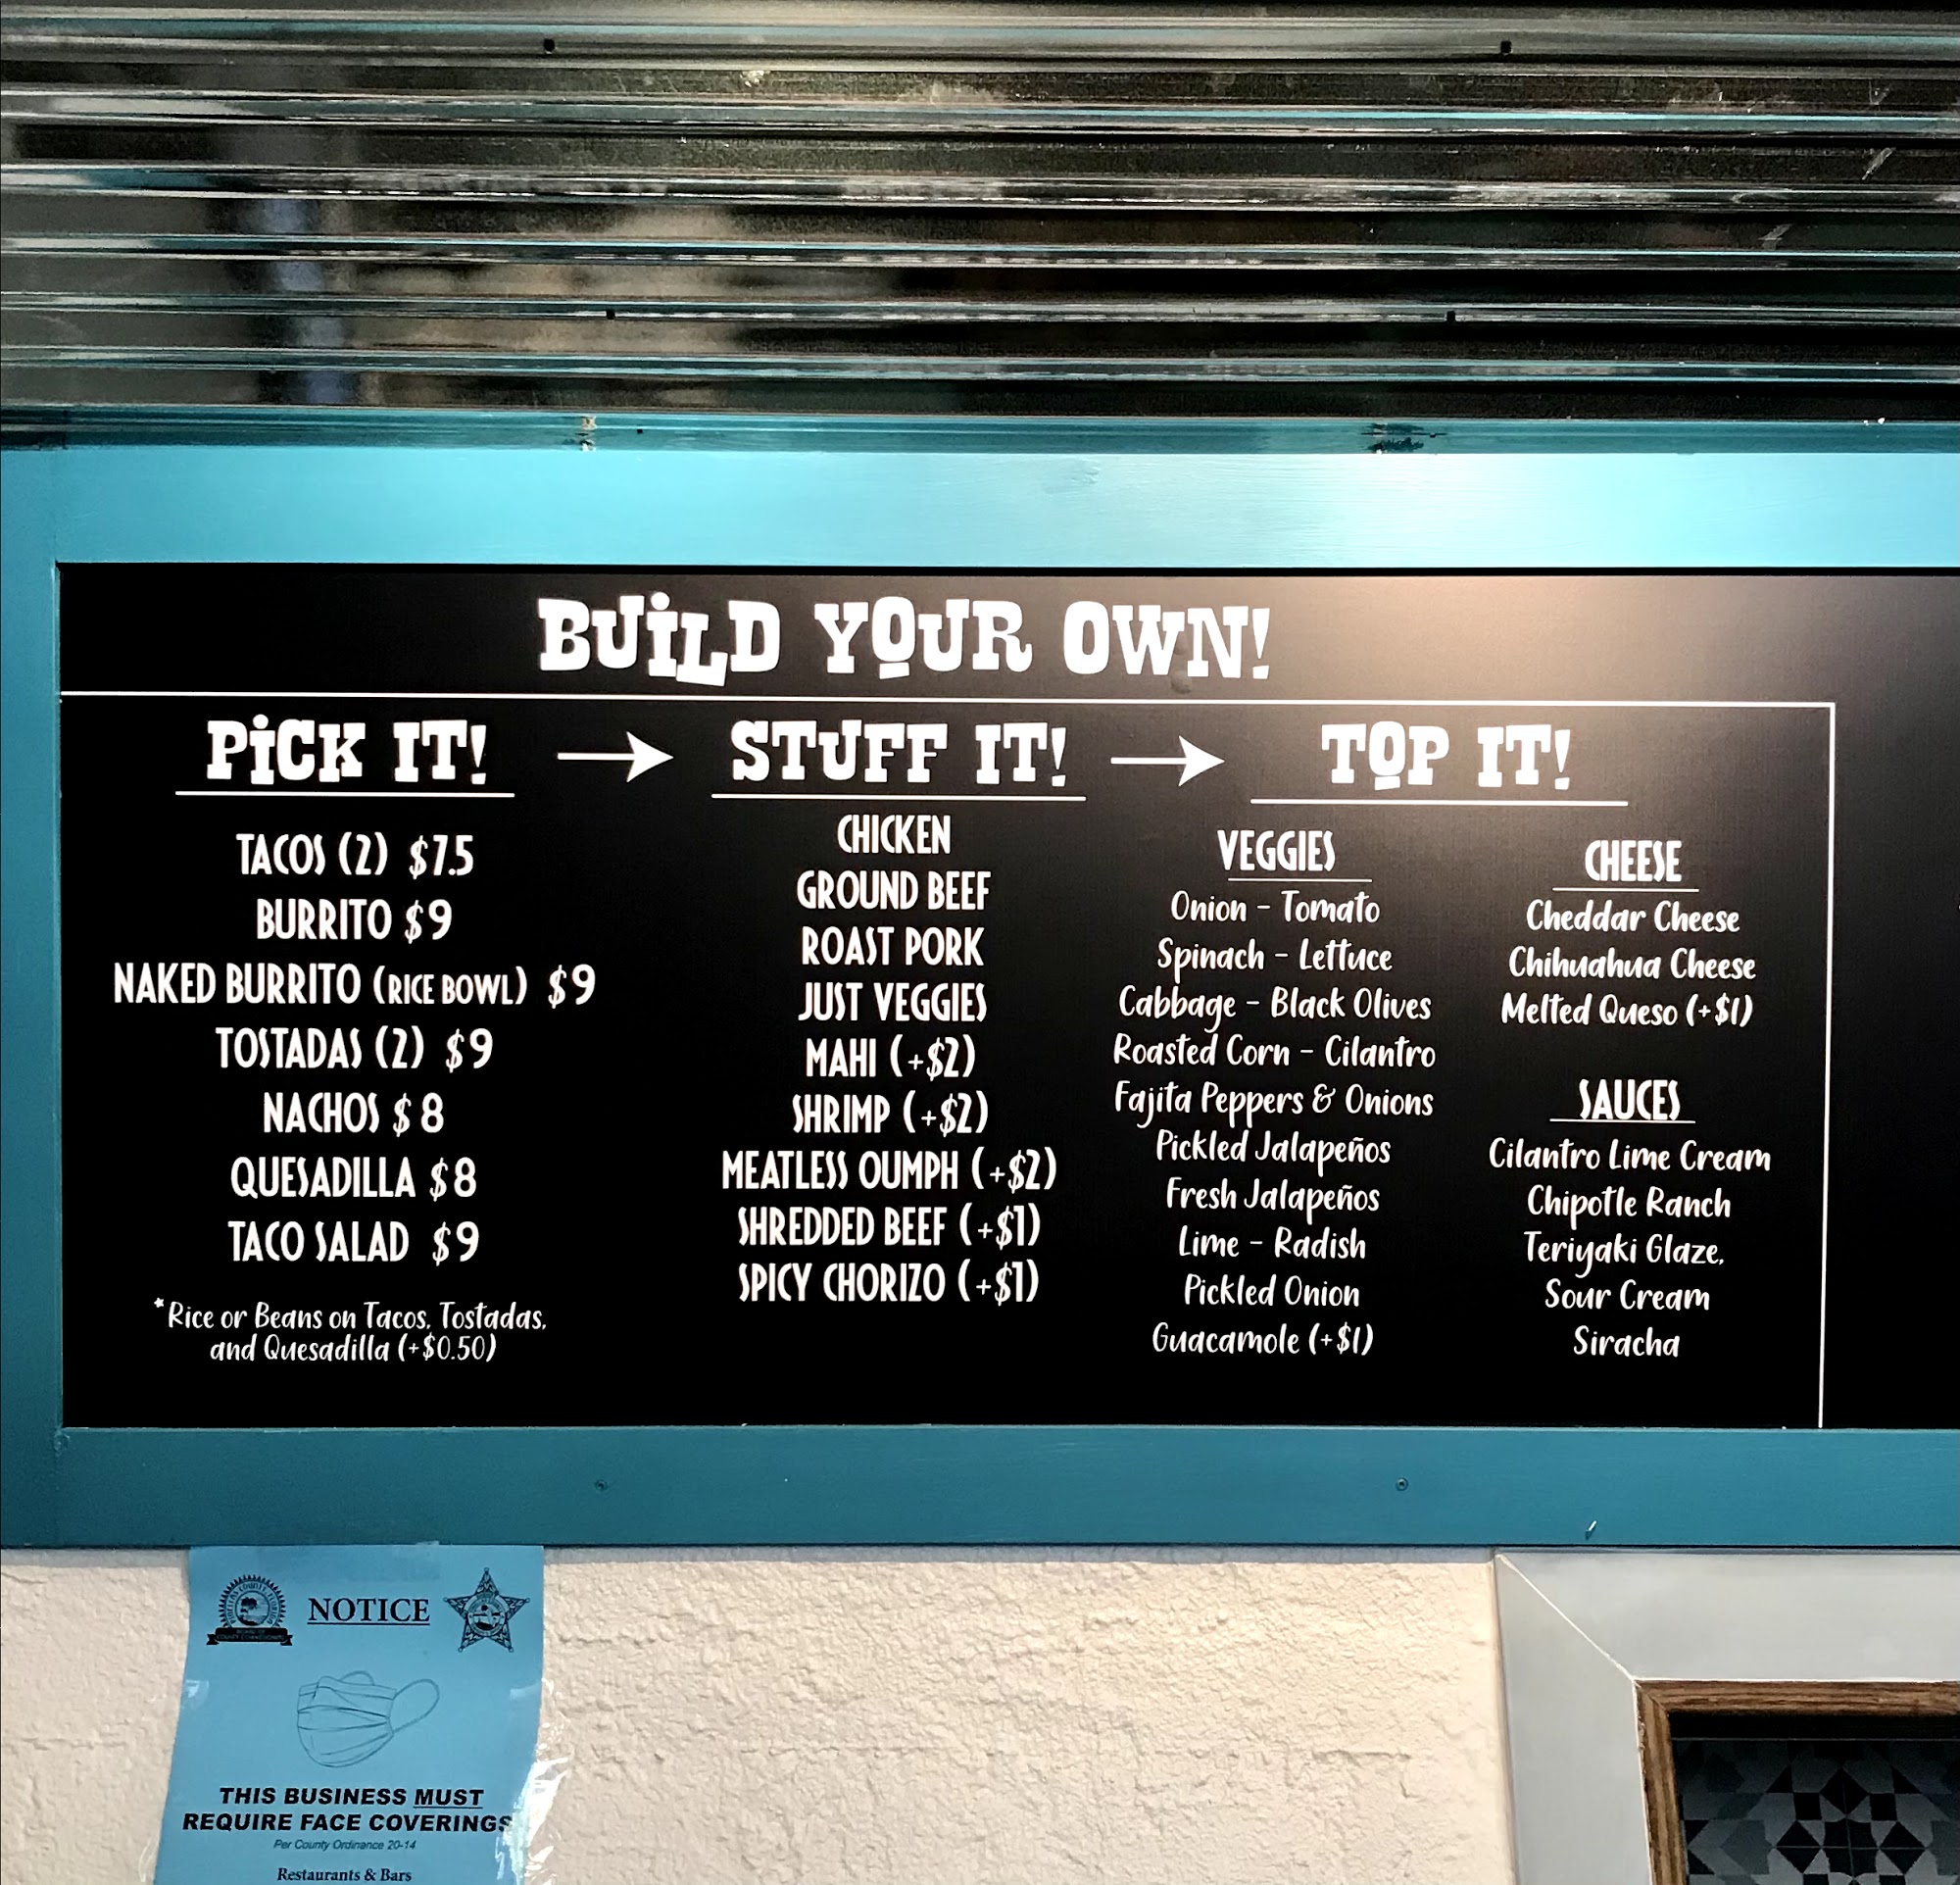 BUILD YOUR OWN!
PICK IT!
TACOS (2) $7.5
BURRITO $9
NAKED BURRITO (RICE BOWL) $9
TOSTADAS (2) $9
NACHOS $8
QUESADILLA $8
TACO SALAD $9
*Rice or Beans on Tacos, Tostadas,
and Quesadilla (+$0.50)
STUFF IT!
CHICKEN
GROUND BEEF
ROAST PORK
JUST VEGGIES
MAHI (+$2)
SHRIMP (+$2)
MEATLESS OUMPH (+$2)
SHREDDED BEEF (+$1)
SPICY CHORIZO (+$1)
TOP IT!
VEGGIES
Onion - Tomato
Spinach - Lettuce
Cabbage - Black Olives
Roasted Corn - Cilantro
Fajita Peppers & Onions
Pickled Jalapeños
Fresh Jalapeños
Lime - Radish
Pickled Onion
Guacamole (+$1)
CHEESE
Cheddar Cheese
Chihuahua Cheese
Melted Queso (+$1)
SAUCES
Cilantro Lime Cream
Chipotle Ranch
Teriyaki Glaze,
Sour Cream
Siracha
NOTICE
THIS BUSINESS MUST
REQUIRE FACE COVERINGS
Per County Ordinance 20-14
Restaurants & Bars